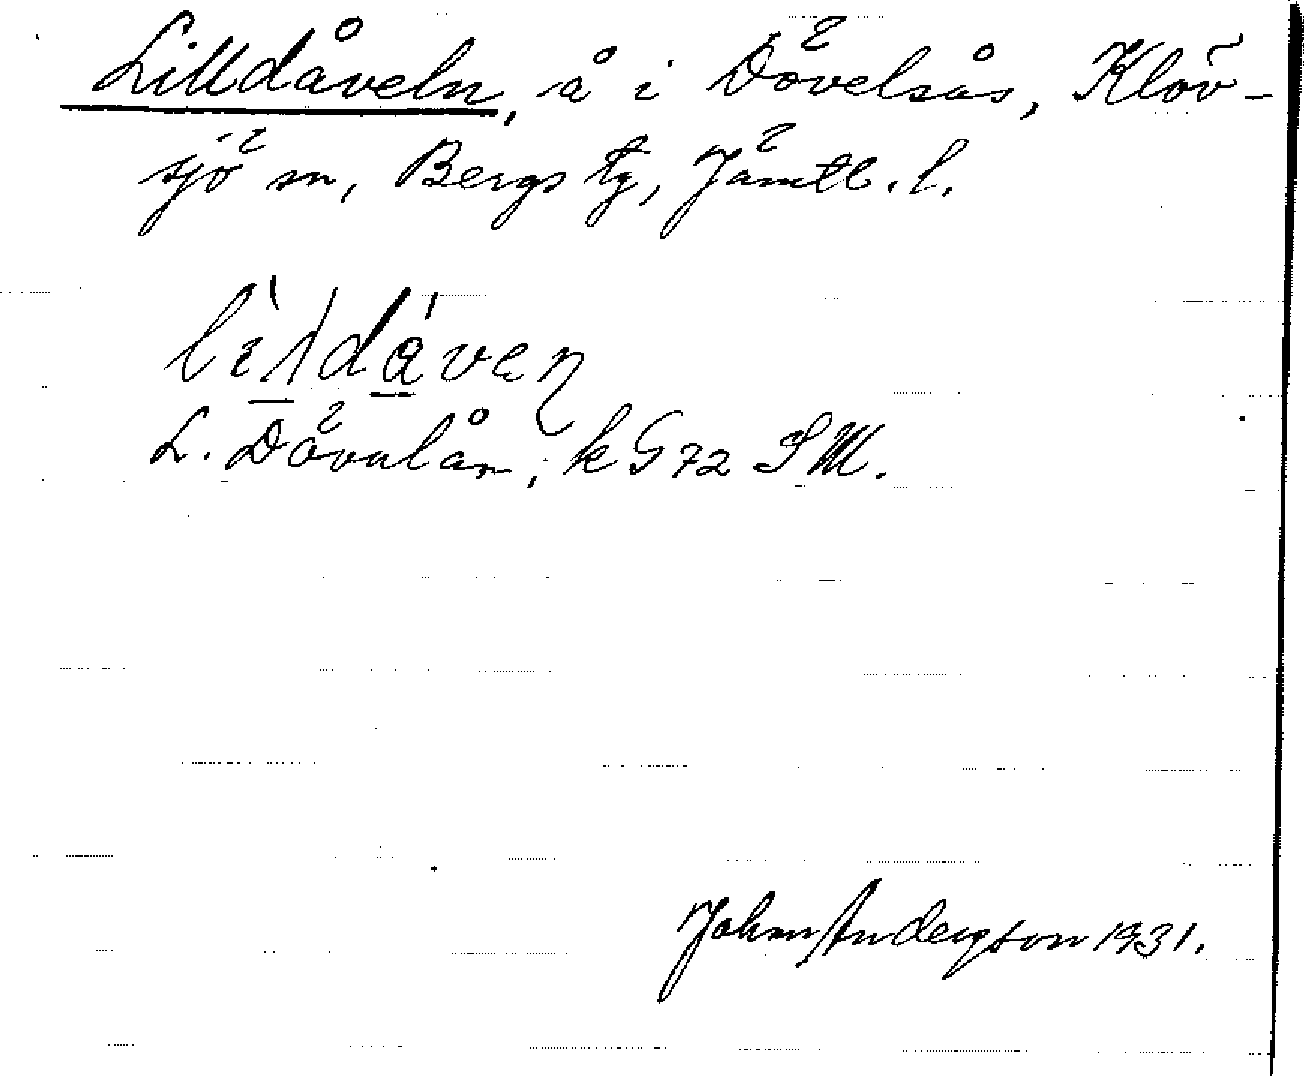 Lilldåveln, å i Dövelsås, Klöv-
sjö sn, Bergs tg, Jämtl. l.
L. Dövalån, k G 72 S M.
John Anderson 1931.